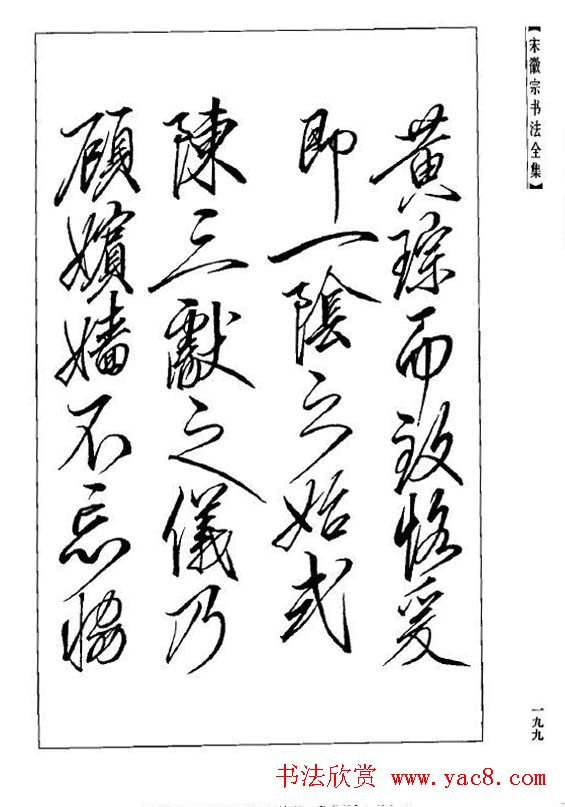 【宋徽宗书法全集】
黄琮而致恪爰
即一陰之始式
陳三獻之儀乃
顧嬪嬙不忘恊
一九九
书法欣赏 www.yac8.com